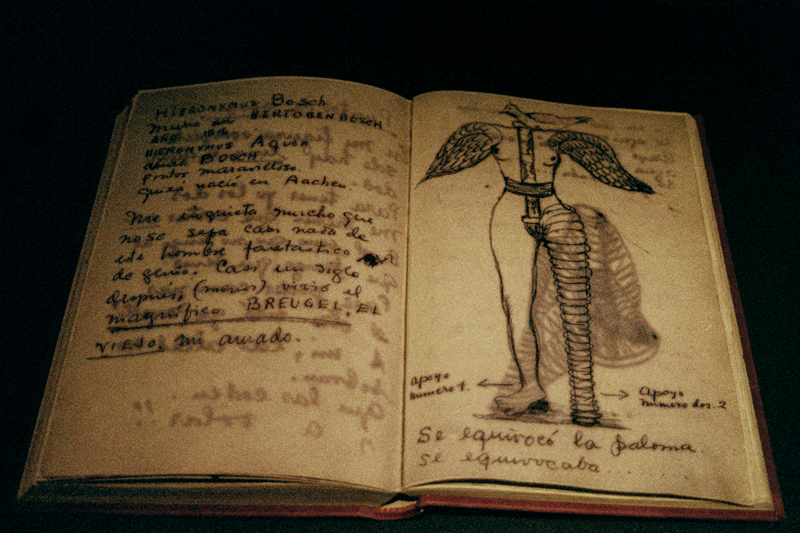 HIERONYMUS Bosch
murió en HERTOGENBOSCH
AÑO 1516
HIERONYMUS Aquen
alias BOSCH.
pintor maravilloso.
quizá nació en Aachen.
Me inquieta mucho que
no se sepa casi nada de
este hombre fantástico
de genio. Casi un siglo
después, (menos) vivió el
magnífico BREUGEL, EL
VIEJO, mi amado.
apoyo
número 1.
Apoyo
número dos. 2
Se equivocó la paloma.
se equivocaba........